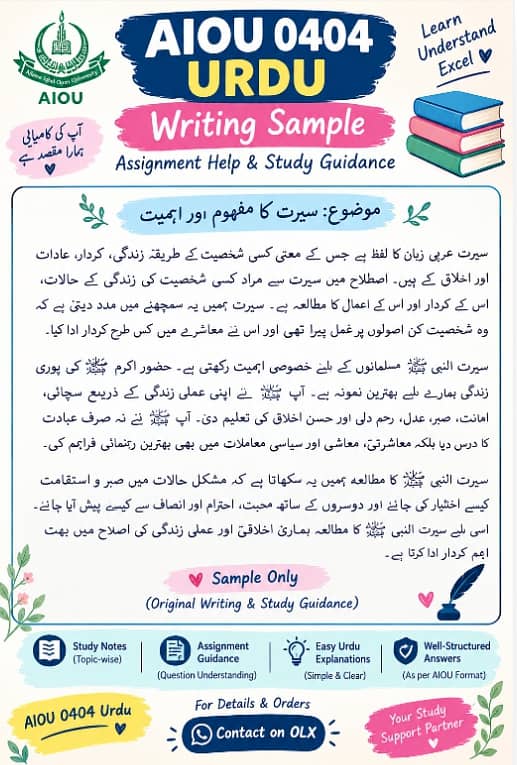 AIOU 0404
URDU
Writing Sample
Assignment Help & Study Guidance
Learn
Understand
Excel
Allama Iqbal Open University
AIOU
آپ کی کامیابی
ہمارا مقصد ہے
موضوع: سیرت کا مفہوم اور اہمیت
سیرت عربی زبان کا لفظ ہے جس کے معنی کسی شخصیت کے طریقۂ زندگی، کردار، عادات
اور اخلاق کے ہیں۔ اصطلاح میں سیرت سے مراد کسی شخصیت کی زندگی کے حالات،
اس کے کردار اور اس کے اعمال کا مطالعہ ہے۔ سیرت ہمیں یہ سمجھنے میں مدد دیتی ہے کہ
وہ شخصیت کن اصولوں پر عمل پیرا تھی اور اس نے معاشرے میں کس طرح کردار ادا کیا۔
سیرت النبی ﷺ مسلمانوں کے لیے خصوصی اہمیت رکھتی ہے۔ حضور اکرم ﷺ کی پوری
زندگی ہمارے لیے بہترین نمونہ ہے۔ آپ ﷺ نے اپنی عملی زندگی کے ذریعے سچائی،
امانت، صبر، عدل، رحم دلی اور حسن اخلاق کی تعلیم دی۔ آپ ﷺ نے نہ صرف عبادت
کا درس دیا بلکہ معاشرتی، معاشی اور سیاسی معاملات میں بھی بہترین رہنمائی فراہم کی۔
سیرت النبی ﷺ کا مطالعہ ہمیں یہ سکھاتا ہے کہ مشکل حالات میں صبر و استقامت
کیسے اختیار کی جائے اور دوسروں کے ساتھ محبت، احترام اور انصاف سے کیسے پیش آیا جائے۔
اسی لیے سیرت النبی ﷺ کا مطالعہ ہماری اخلاقی اور عملی زندگی کی اصلاح میں بہت
اہم کردار ادا کرتا ہے۔
Sample Only
(Original Writing & Study Guidance)
Study Notes
(Topic-wise)
Assignment
Guidance
(Question Understanding)
Easy Urdu
Explanations
(Simple & Clear)
Well-Structured
Answers
(As per AIOU Format)
AIOU 0404 Urdu
For Details & Orders
Contact on OLX
Your Study
Support Partner